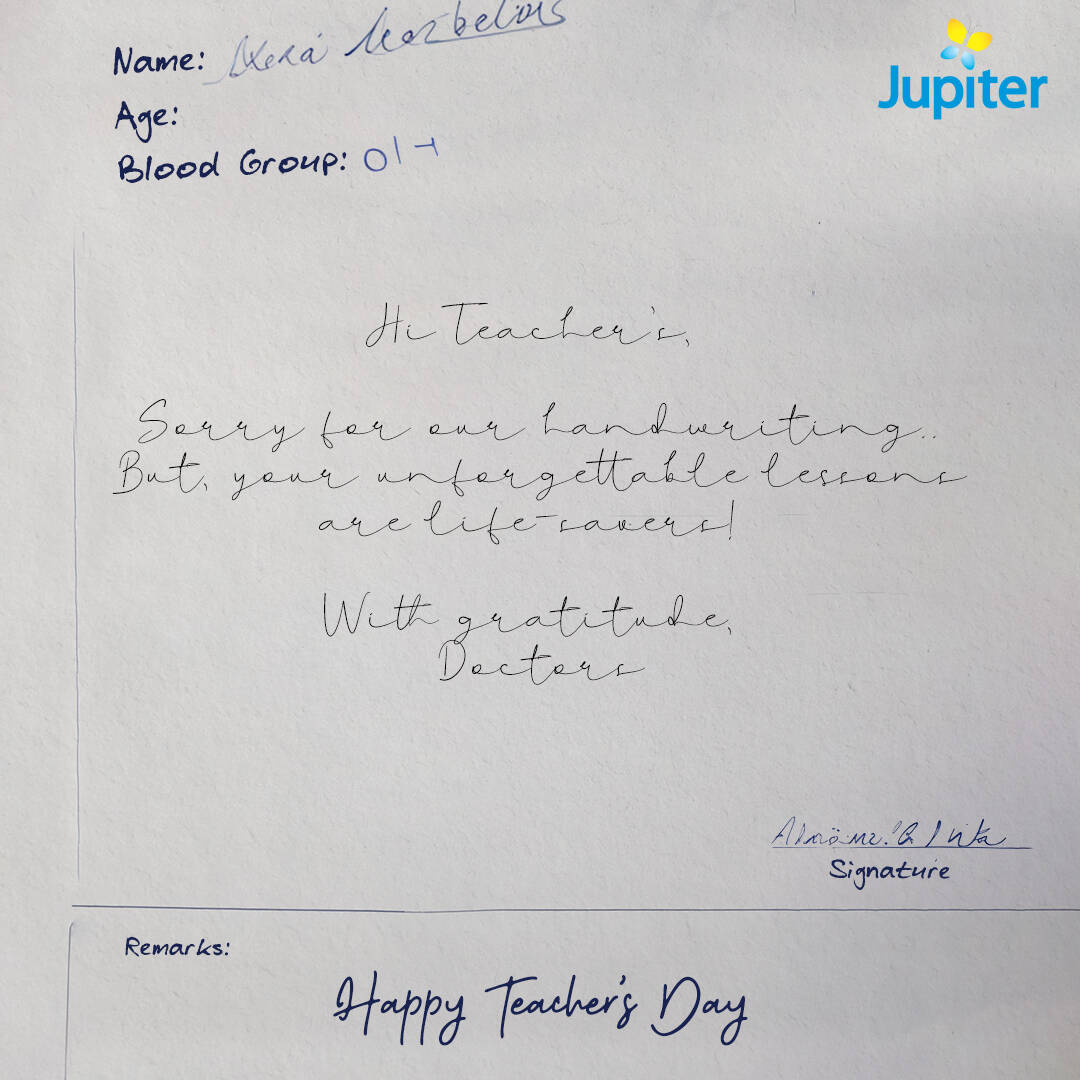 Name:
Jupiter
Age:
Blood Group:
Hi Teacher's,
Sorry for our handwriting..
But, your unforgettable lessons
are life-savers!
With gratitude,
Doctors
Signature
Remarks:
Happy Teacher's Day